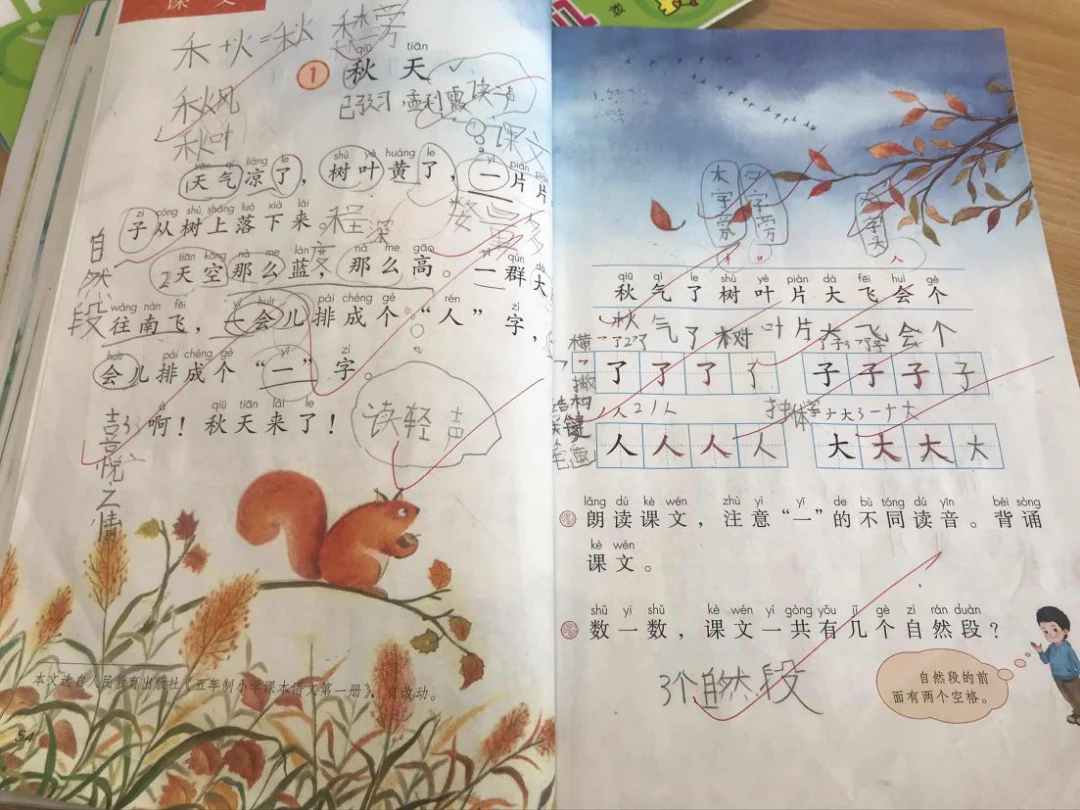 课 文
禾 + 火 = 秋
秋风
秋叶
qiū tiān
1 秋 天
已预习
读三声
课文
tiān qì liáng le shù yè huáng le yí piàn piàn
1天气凉了，树叶黄了，一片片
yè zi cóng shù shàng luò xià lái
子从树上落下来。
程
深
自
然
段
tiān kōng nà me lán nà me gāo yì qún dà
2天空那么蓝，那么高。一群大
wǎng nán fēi yí huìr pái chéng gè rén zì
往南飞，一会儿排成个“人”字，
huìr pái chéng gè yī zì
会儿排成个“一”字。
à qiū tiān lái le
3啊！秋天来了！
读轻声
喜
悦
之
情
本文选自人民教育出版社《五年制小学课本语文第一册》，有改动。
54
木字旁
口字旁
人字头
qiū qì le shù yè piàn dà fēi huì gè
秋 气 了 树 叶 片 大 飞 会 个
秋 气 了 树 叶 片 大 飞 会 个
横
撇
了 了 了 了 子 子 子 子
1人 2人
独体字 一 大 3 一 ナ 大
人 人 人 人 大 大 大 大
lǎng dú kè wén zhù yì yī de bù tóng dú yīn bèi sòng
朗读课文，注意“一”的不同读音。背诵
kè wén
课文。
shǔ yi shǔ kè wén yí gòng yǒu jǐ gè zì rán duàn
数一数，课文一共有几个自然段？
3个自然段
自然段的前
面有两个空格。